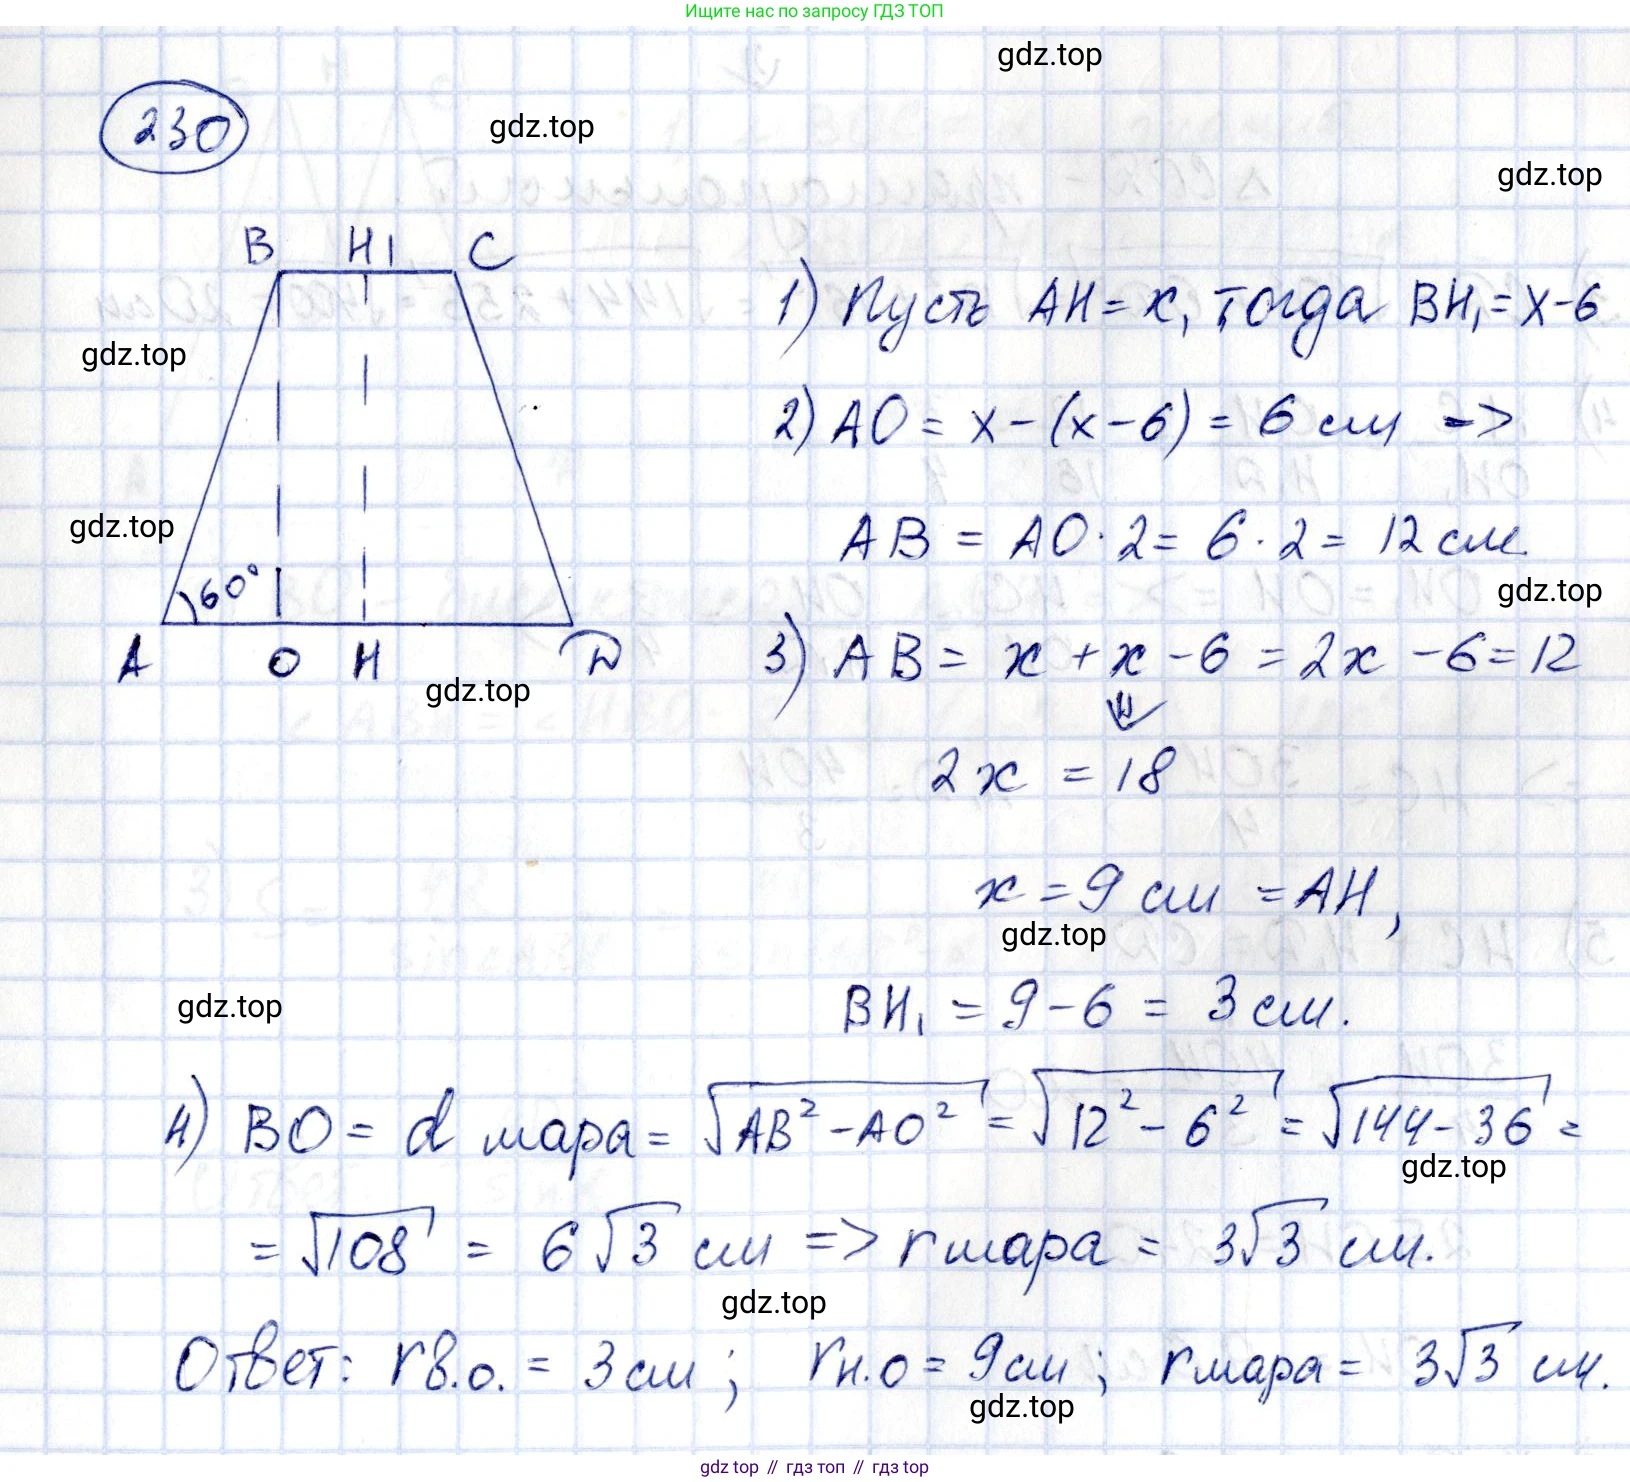 Ищите нас по запросу ГДЗ ТОП
gdz.top
230
gdz.top
gdz.top
B H1 C
1) Пусть AH = x, тогда BH₁ = x-6
gdz.top
2) AO = x - (x-6) = 6 см =>
gdz.top
AB = AO · 2 = 6 · 2 = 12 см.
60°
gdz.top
A O H D
3) AB = x + x - 6 = 2x - 6 = 12
gdz.top
⇓
2x = 18
x = 9 см = AH,
gdz.top
gdz.top
BH₁ = 9 - 6 = 3 см.
4) BO = d шара = √AB² - AO² = √12² - 6² = √144 - 36 =
gdz.top
= √108 = 6√3 см => r шара = 3√3 см.
gdz.top
Ответ: r в.о. = 3 см; r н.о = 9 см; r шара = 3√3 см.
gdz.top
gdz top // гдз топ // гдз top